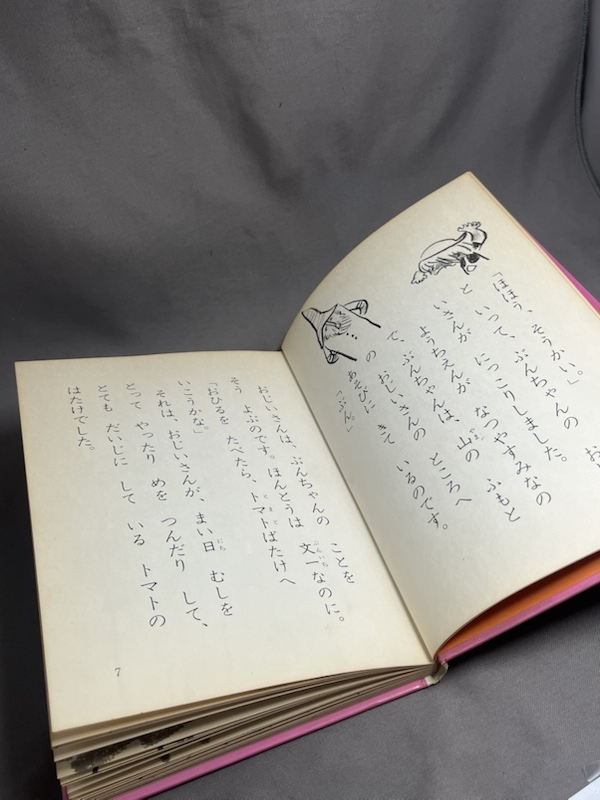 「ほほう、そうかい。」
と いって、ぶんちゃんの お
いさんが にっこりしました。
ようちえんが なつやすみなの
で、ぶんちゃんは、山の ふもと
の おじいさんの ところへ
あそびに きて いるのです。
「ぶん。」
おじいさんは、ぶんちゃんの ことを
そう よぶのです。ほんとうは 文一なのに。
「おひるを たべたら、トマトばたけへ
いこうかな」
それは、おじいさんが、まい日 むしを
とって やったり めを つんだり して、
とても だいじに して いる トマトの
はたけでした。
7